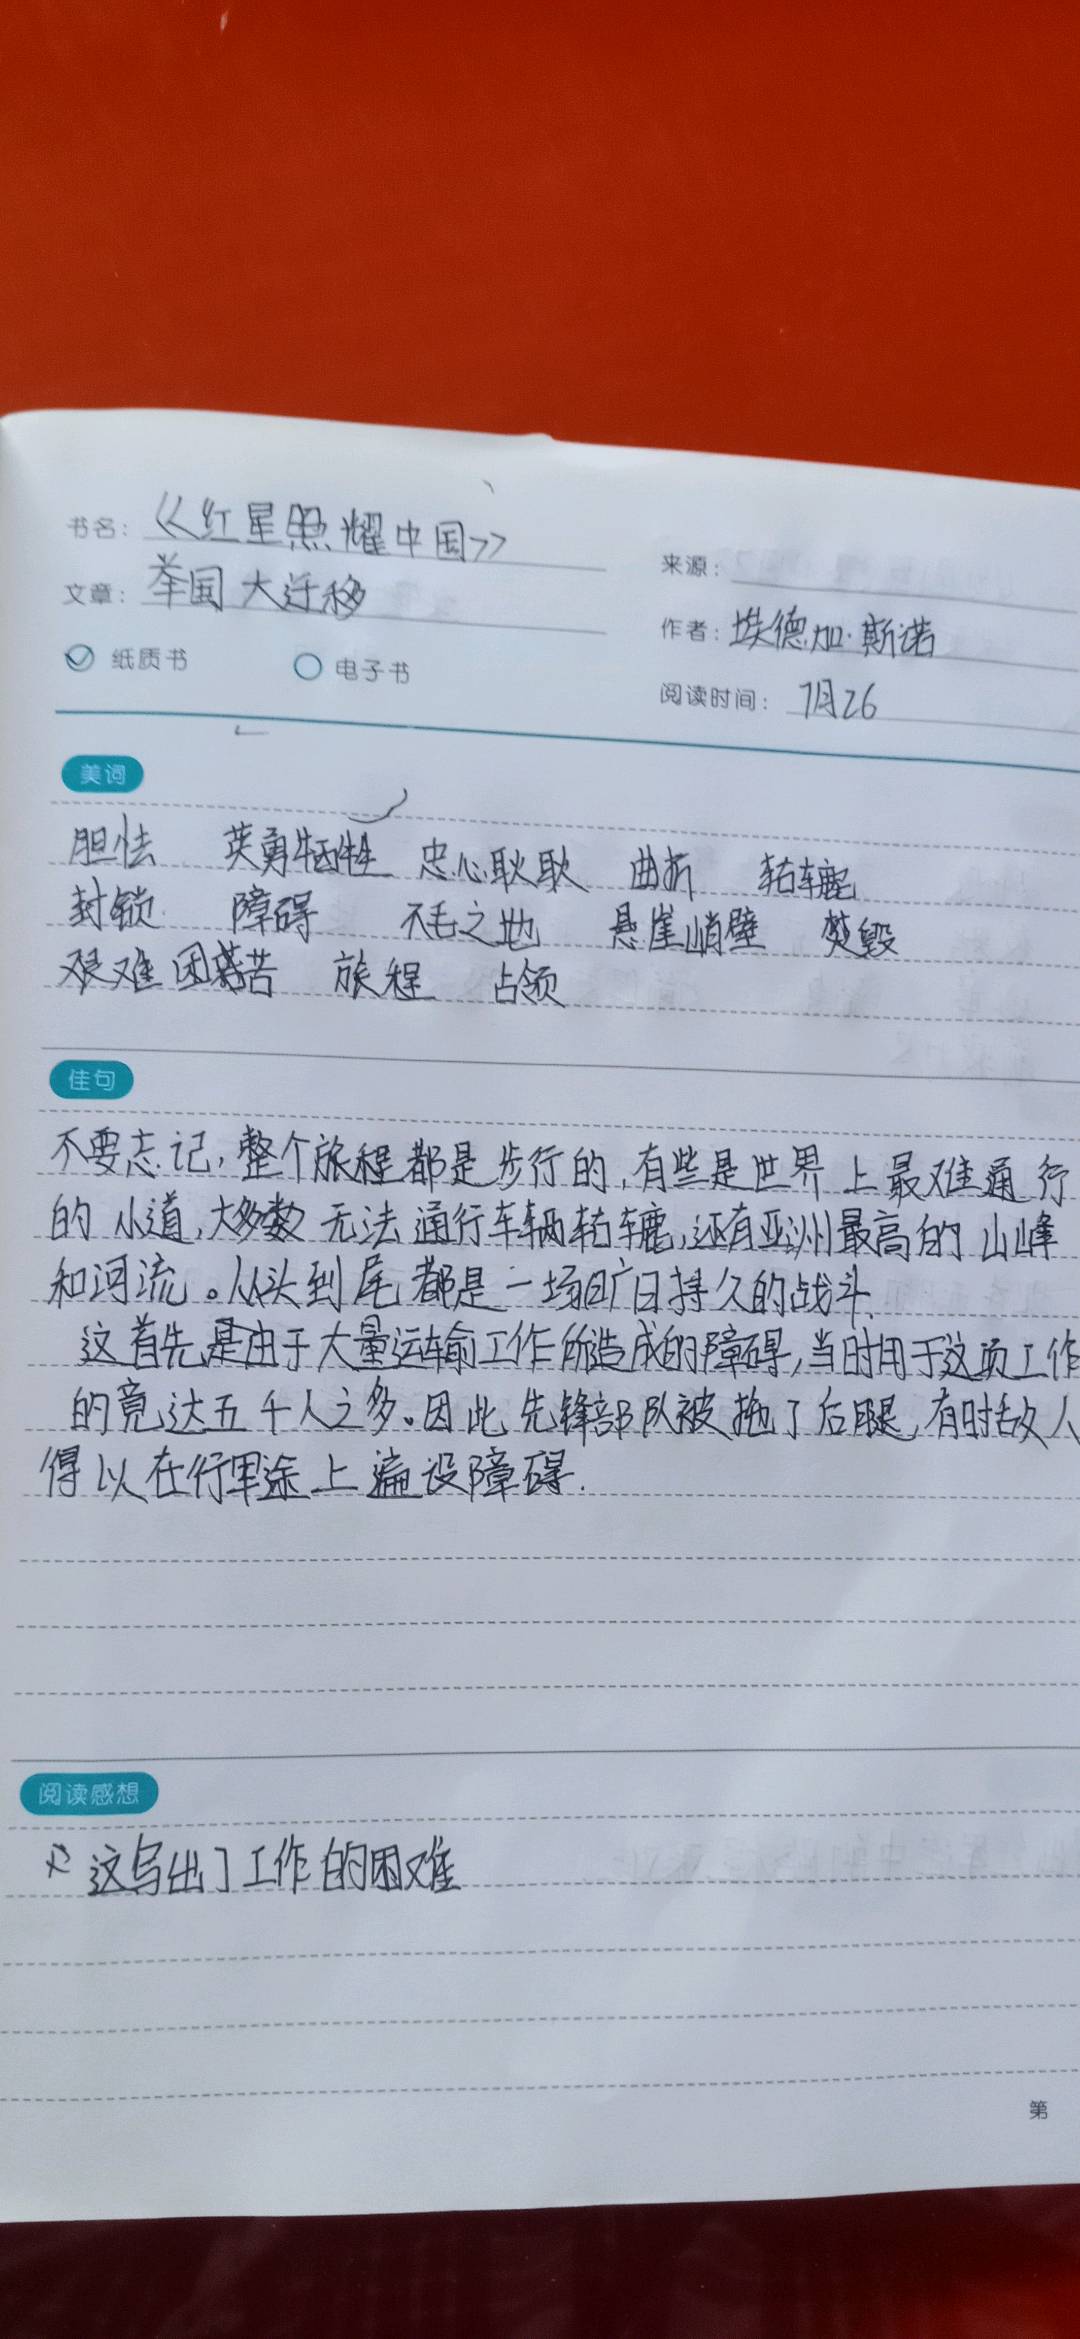 书名：《红星照耀中国》
来源：
文章：举国大迁移
作者：埃德加·斯诺
纸质书 电子书
阅读时间：7月26
美词
胆怯 英勇牺牲 忠心耿耿 曲折 轱辘
封锁 障碍 不毛之地 悬崖峭壁 焚毁
艰难困苦 旅程 占领
佳句
不要忘记，整个旅程都是步行的，有些是世界上最难通行
的小道，大多数无法通行车辆轱辘，还有亚洲最高的山峰
和河流。从头到尾都是一场旷日持久的战斗.
这首先是由于大量运输工作所造成的障碍，当时用于这项工作
的竟达五千人之多。因此先锋部队被拖了后腿，有时敌人
得以在行军途上遍设障碍.
阅读感想
这写出了工作的困难
第